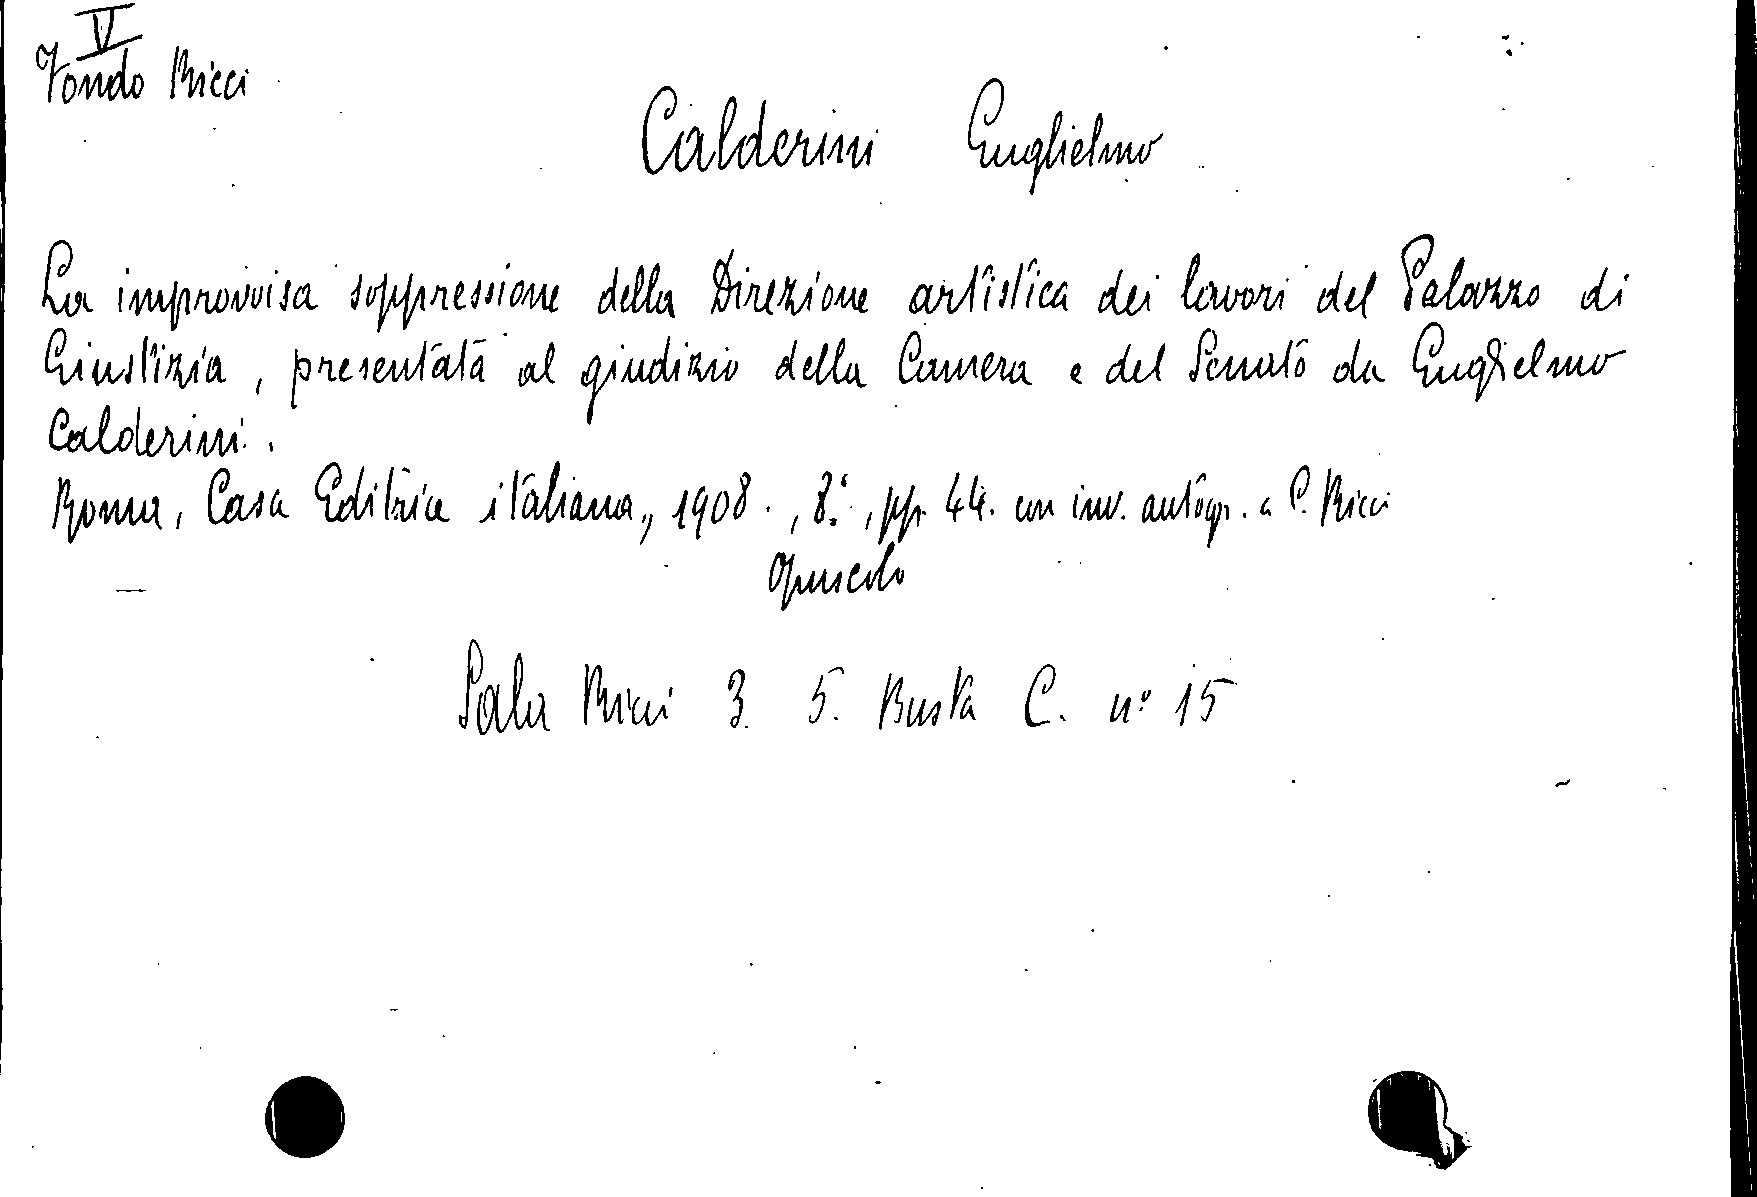 V
Fondo Ricci
Calderini Guglielmo
La improvvisa soppressione della Direzione artistica dei lavori del Palazzo di
Giustizia, presentata al giudizio della Camera e del Senato da Guglielmo
Calderini.
Roma, Casa Editrice italiana, 1908., 8.°, pp. 44. con inv. autogr. a C. Ricci
Opuscolo
Sala Ricci 3. 5. Busta C. n° 15